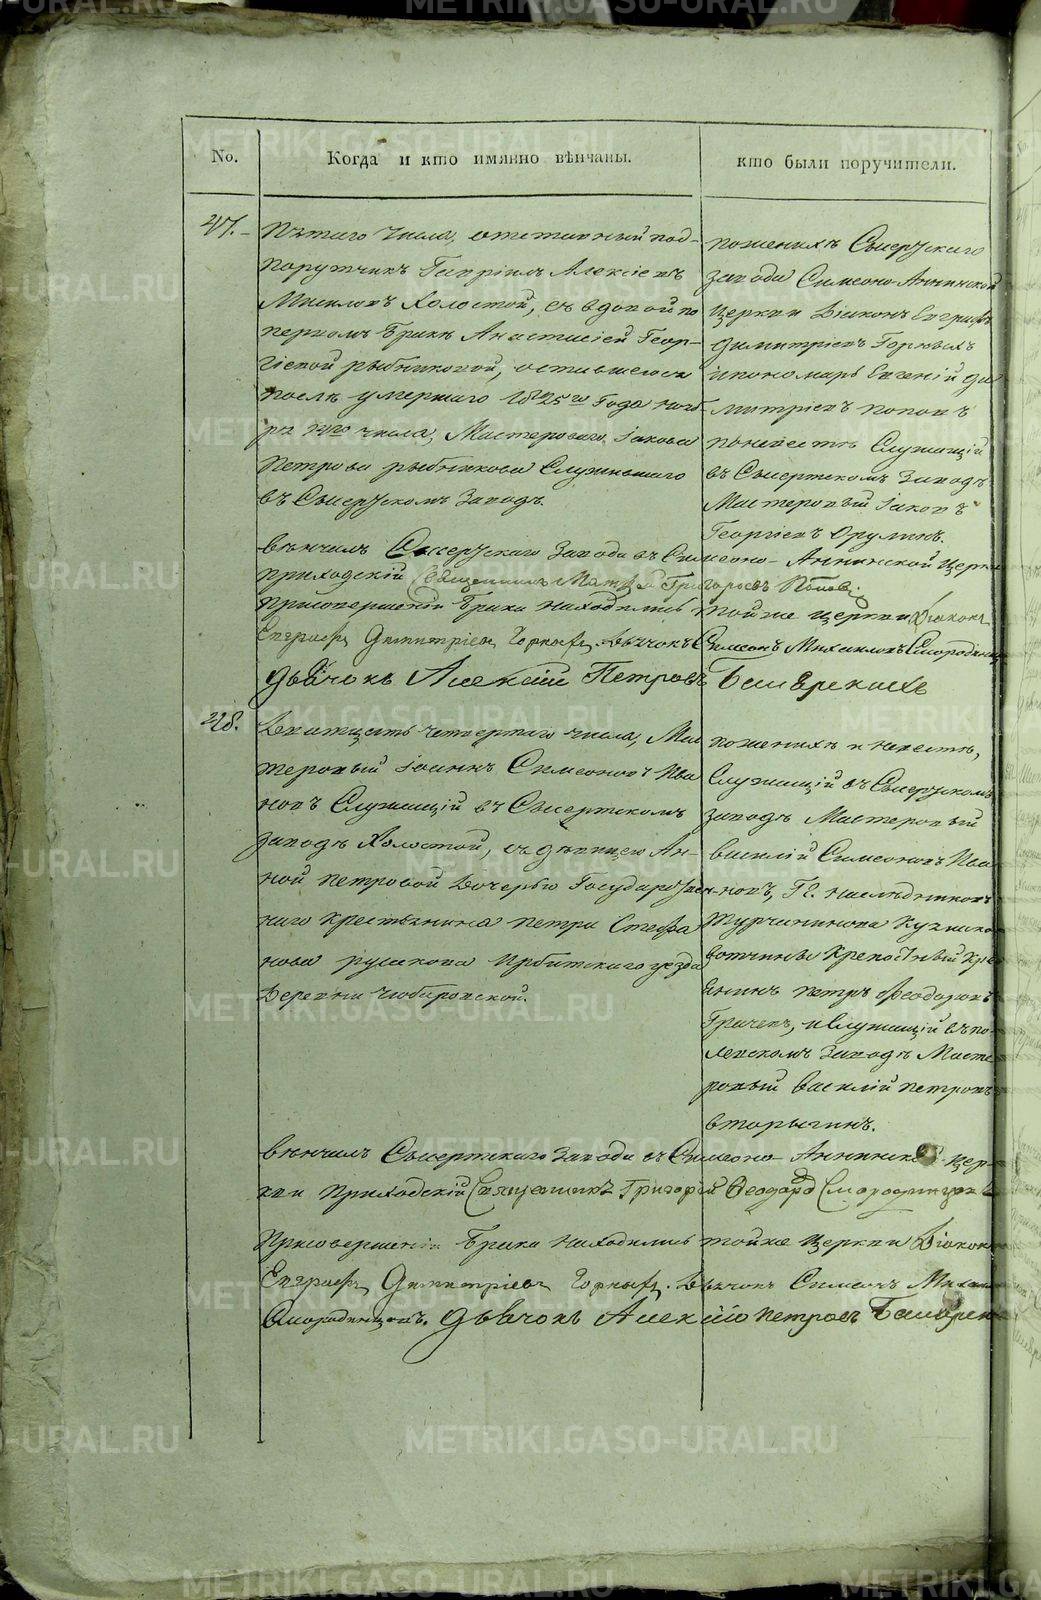 No.
Когда и кто имянно вѣнчаны.
кто были поручители.
47.
пятаго числа, отставный под-
порутчикъ Гавріилъ Алексіевъ
Мисиловъ Холостой, съ вдовой по
первомъ бракѣ Анастасіей Геор-
гіевой рыбниковой, оставшеюся
послѣ умершаго 1825го Года нояб
ря числа, Мастероваго Іакова
Петрова рыбникова Служившаго
въ Сысертскомъ Заводѣ.
по женихѣ Сысертскаго
завода Симеоно-Аннинской
Церкви Діаконъ Евграфъ
Димитріевъ Горныхъ
и пономарь Евгеній Ди
митріевъ Поповъ
по невестѣ Служащій
въ Сысертскомъ Заводѣ
Мастеровый Іаковъ
Георгіевъ Орулинъ.
вѣнчалъ Сысертскаго Завода въ Симеоно-Аннинской Церкви
приходскій Священникъ Григорьевъ Поповъ.
при совершеніи брака находились той же церкви Діаконъ
Евграфъ Димитріевъ Горныхъ. Дьячокъ Симеонъ Михаиловъ Смородинцевъ
Дьячокъ Алексій Петровъ
48.
Дватцать четвертаго числа, Мас
теровый Іоаннъ Симеоновъ Ива
новъ Служащій въ Сысертскомъ
заводѣ Холостой, съ дѣвицею Ан-
ной Петровой Дочерью Государствен-
наго Крестьянина Петра Стефа
нова русскова Ирбитскаго уезда
Деревни Чюбаровской.
по женихѣ и невестѣ,
Служащій въ Сысертскомъ
заводѣ Мастеровый
Василій Симеоновъ Ива
новъ, Гг. наслѣдниковъ
Турчанинова
вотчины Крепостный Кре
янинъ Петръ Феодоровъ
Грачевъ, и Служащій въ По-
левскомъ Заводѣ Масте
ровый Василій Петровъ
вторыгинъ.
вѣнчалъ Сысертскаго Завода въ Симеоно-Аннинской цер-
кви приходскій Священникъ Григорій Феодоровъ Смородинцовъ
При совершеніи брака находились той же Церкви Діаконъ
Евграфъ Димитріевъ Горныхъ. Дьячокъ Симеонъ Михаил
Смородинцовъ. Дьячокъ Алексій Петровъ
METRIKI.GASO-URAL.RU